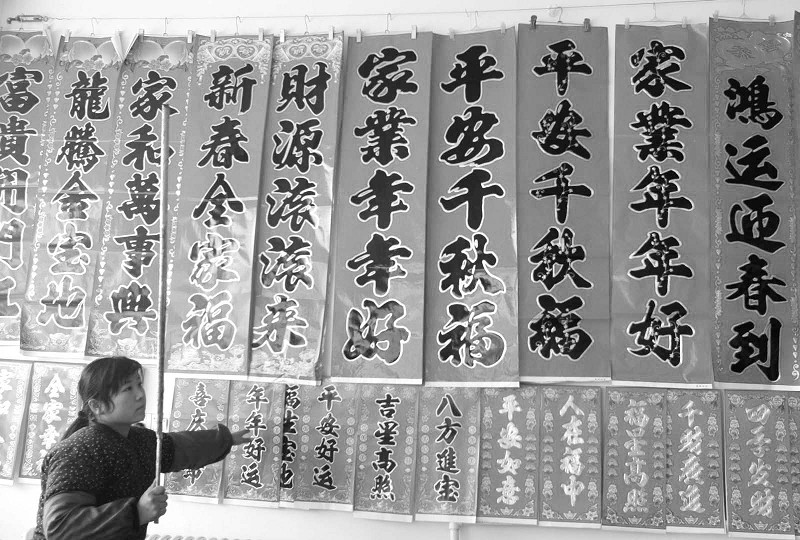 富貴
龍騰金宝地
家和萬事興
新春全家福
財源滚滚来
家業年年好
平安千秋福
平安千秋福
家業年年好
鸿运迎春到
全家
喜庆
年年好运
宝地
平安好运
吉星高照
八方進宝
平安如意
人在福中
福星高照
发财